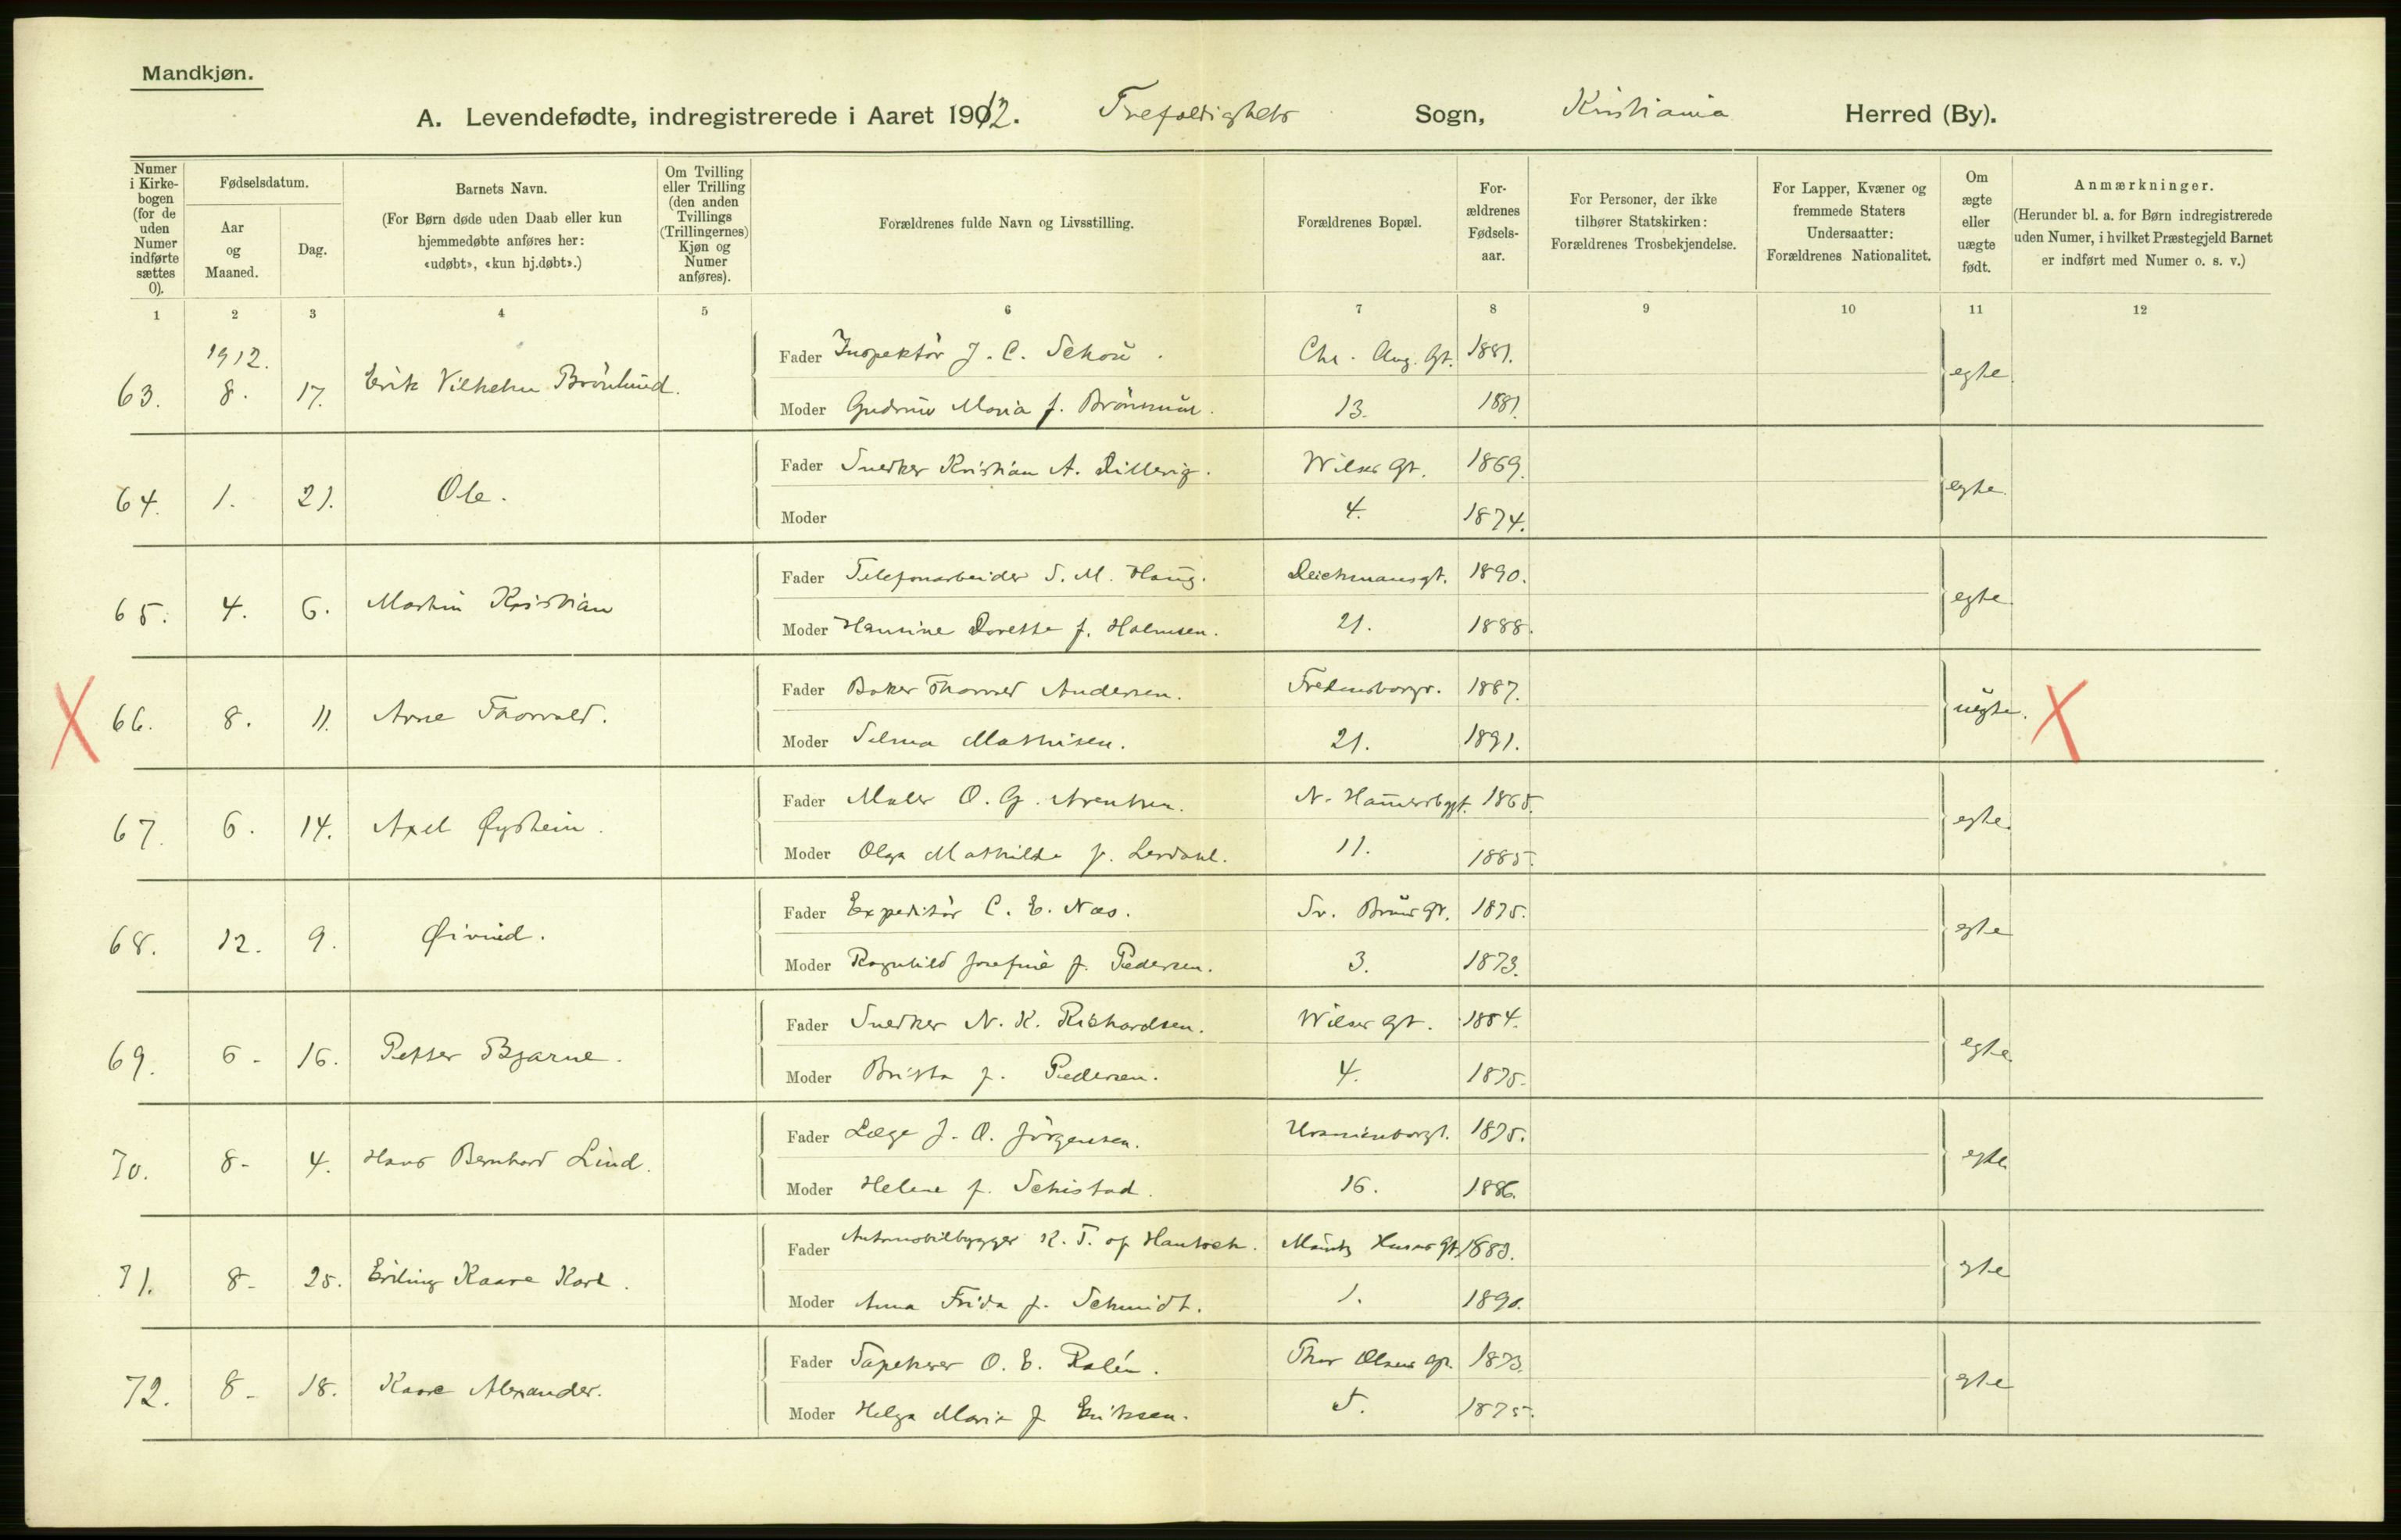 Mandkjøn.
A. Levendefødte, indregistrerede i Aaret 1912. Trefoldigheds Sogn, Kristiania Herred (By).
Numer i Kirkebogen (for de uden Numer indførte sættes 0).
Fødselsdatum.
Aar og Maaned.
Dag.
Barnets Navn.
(For Børn døde uden Daab eller kun hjemmedøbte anføres her: «udøbt», «kun hj.døbt».)
Om Tvilling eller Trilling (den anden Tvillings (Trillingernes) Kjøn og Numer anføres).
Forældrenes fulde Navn og Livsstilling.
Forældrenes Bopæl.
Forældrenes Fødselsaar.
For Personer, der ikke tilhører Statskirken: Forældrenes Trosbekjendelse.
For Lapper, Kvæner og fremmede Staters Undersaatter: Forældrenes Nationalitet.
Om ægte eller uægte født.
Anmærkninger.
(Herunder bl. a. for Børn indregistrerede uden Numer, i hvilket Præstegjeld Barnet er indført med Numer o. s. v.)
1 2 3 4 5 6 7 8 9 10 11 12
1912.
Fader Inspektör J. C. Schou. Chr. Aug. Gt. 1881.
63. 8. 17. Erik Vilhelm Brönlund. egte.
Moder Gudrun Maria f. 13. 1881.
Fader Snedker Kristian A. Dillevig. Wilses Gt. 1869.
64. 1. 21. Ole. egte.
Moder 4. 1874.
Fader Telefonarbeider S. M. Haug. Deichmansgt. 1890.
65. 4. 6. Martin Kristian egte
Moder Hansine Dorette f. Holmsen. 21. 1888.
Fader Baker Thorvald Andersen. Fredensborgv. 1887.
X 66. 8. 11. Arne Thorvald. uegte. X
Moder Selma Mathisen. 21. 1891.
Fader Maler O. G. Arentsen. N. Hammersbggt. 1865.
67. 6. 14. Axel Øystein. egte.
Moder Olga Mathilde f. Lerdahl. 11. 1885.
Fader Expeditör C. E. Næs. Sv. Bruns Gt. 1875.
68. 12. 9. Øivind. egte
Moder Ragnhild Josefine f. Pedersen. 3. 1873.
Fader Snedker N. K. Richardsen. Wilses Gt. 1884.
69. 6- 16. Petter Bjarne. egte.
Moder Britta f. Pedersen. 4. 1875.
Fader Læge J. A. Jörgensen. Uranienborgt. 1875.
70. 8- 4. Hans Bernhard Lind. egte
Moder Helene f. Schistad. 16. 1886.
Fader Automobilbygger K. T. af Hantsch. 1883.
71. 8- 25. Erling Kaare Karl. egte
Moder Anna Frida f. Schmidt. 1. 1890.
Fader Tapetserer O. E. Thor Olsens Gt. 1873.
72. 8- 18. Kaare Alexander. egte
Moder Helga Marie f. Eriksen. 5. 1875.